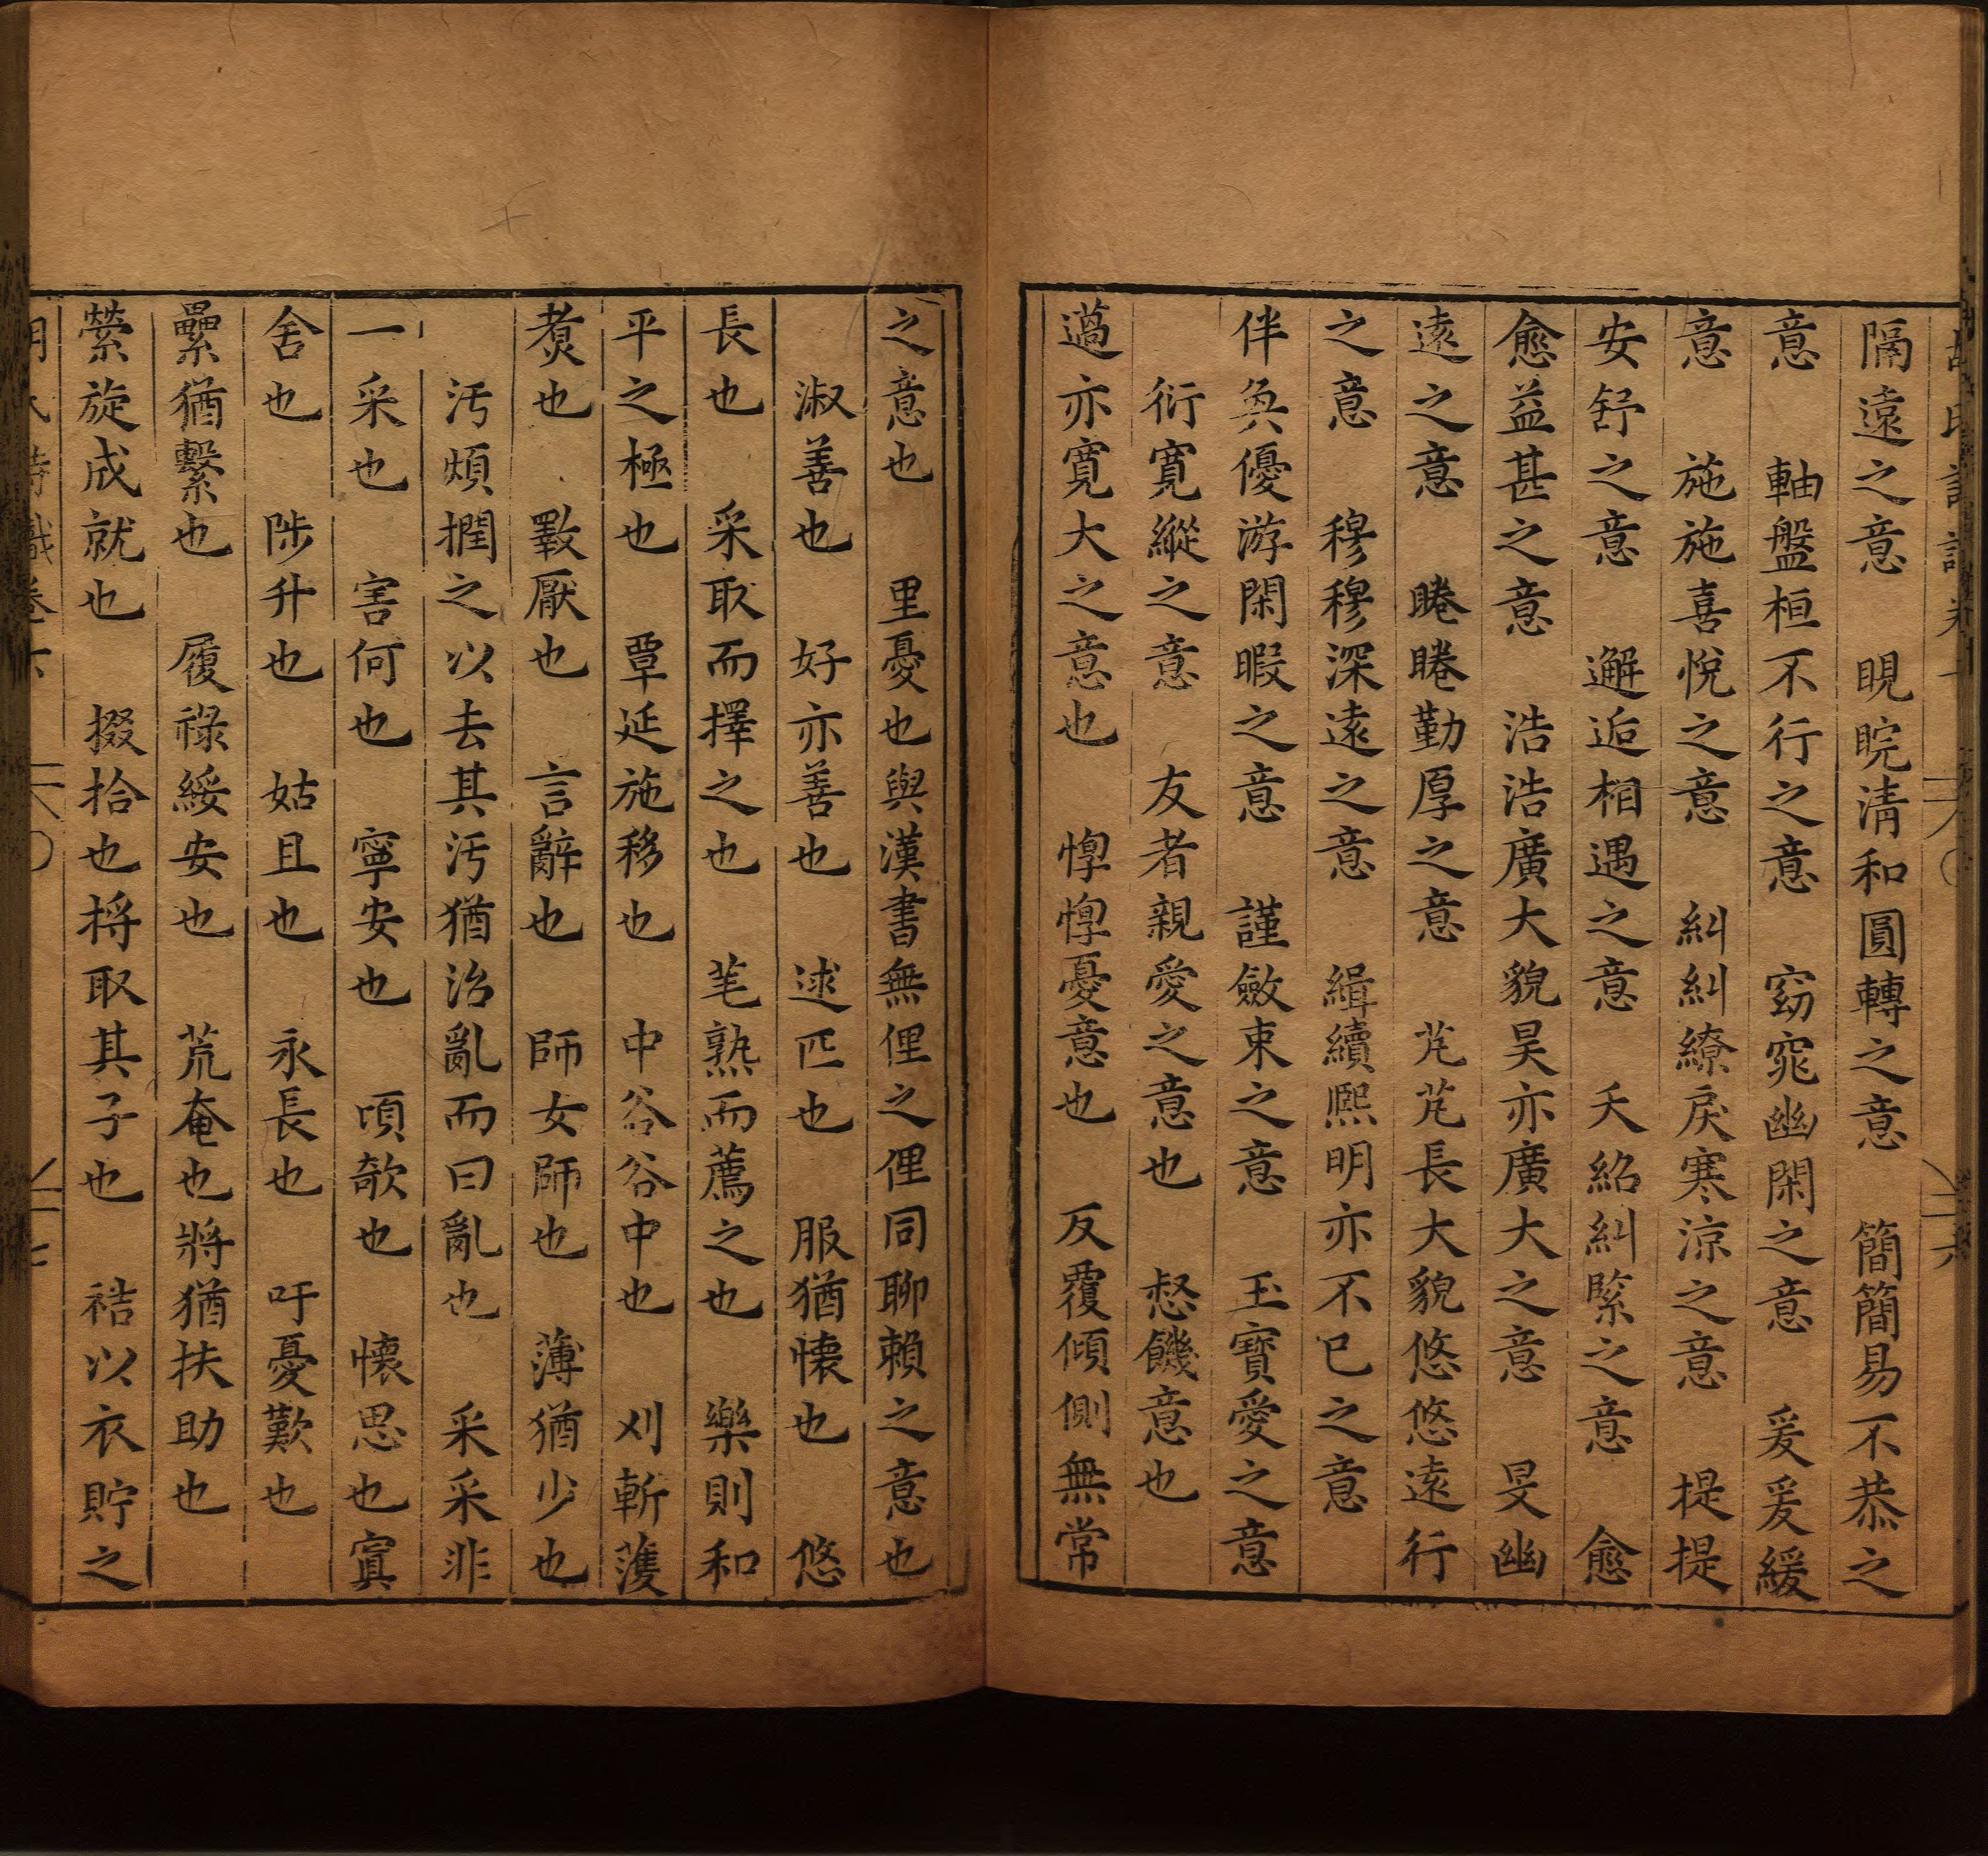 隔遠之意　睍睆清和圓轉之意　簡簡易不恭之
意　軸盤桓不行之意　窈窕幽閑之意　爰爰緩
意　施施喜悅之意　糾糾繚戾寒涼之意　提提
安舒之意　邂逅相遇之意　夭紹糾緊之意　愈
愈益甚之意　浩浩廣大貌昊亦廣大之意　旻幽
遠之意　睠睠勤厚之意　芃芃長大貌悠悠遠行
之意　穆穆深遠之意　緝續熙明亦不已之意
伴奐優游閑暇之意　謹斂束之意　玉寶愛之意
衍寬縱之意　友者親愛之意也　惄饑意也
薖亦寬大之意也　惸惸憂意也　反覆傾側無常
之意也　里憂也與漢書無俚之俚同聊賴之意也
淑善也　好亦善也　逑匹也　服猶懷也　悠
長也　采取而擇之也　芼熟而薦之也　樂則和
平之極也　覃延施移也　中谷谷中也　刈斬濩
煑也　斁厭也　言辭也　師女師也　薄猶少也
汚煩撋之以去其汚猶治亂而曰亂也　采采非
一采也　害何也　寧安也　頃欹也　懷思也寘
舍也　陟升也　姑且也　永長也　吁憂歎也
纍猶繫也　履祿綏安也　荒奄也將猶扶助也
縈旋成就也　掇拾也捋取其子也　袺以衣貯之